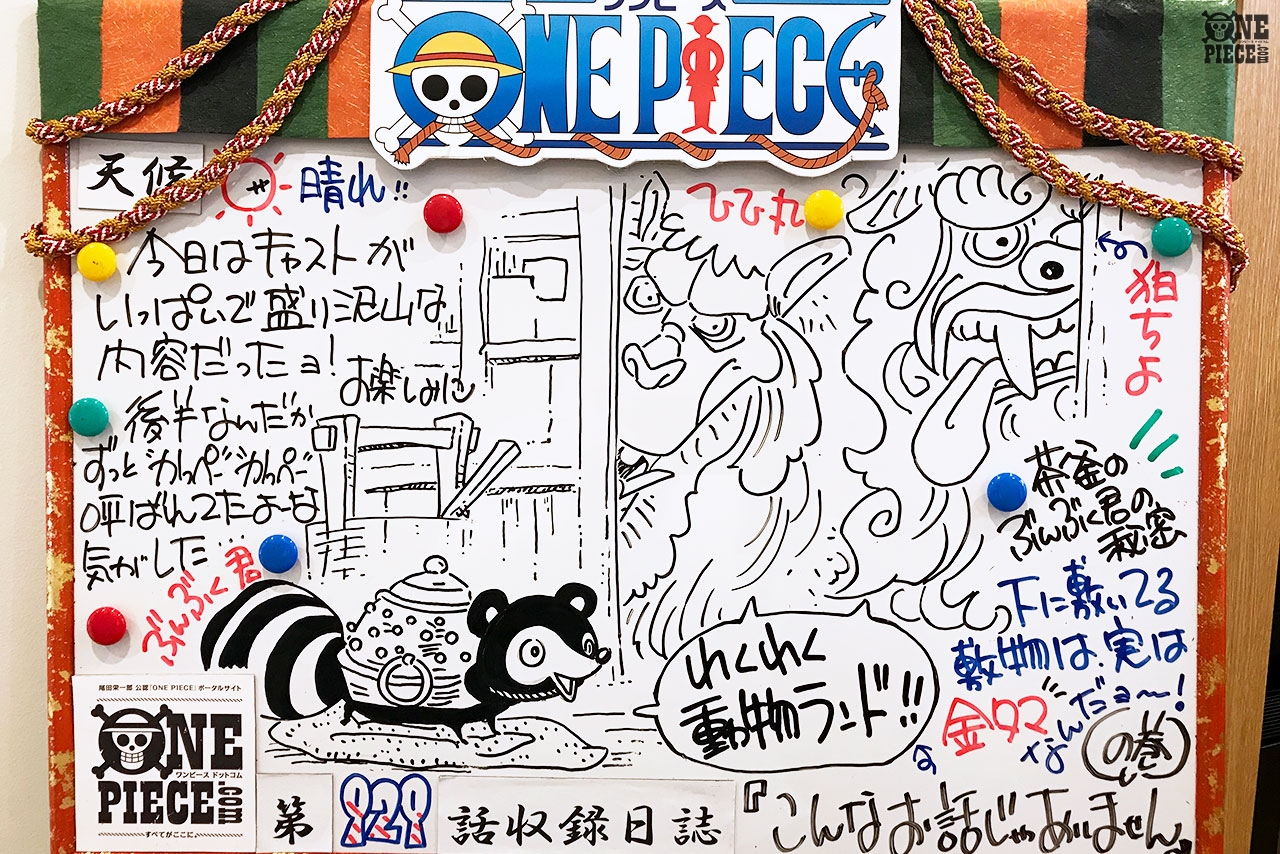 ワンピース
ONE PIECE
ONE
PIECE
.com
天候
晴れ!!
今日はキャストが
いっぱいで盛り沢山な
内容だったヨ!
お楽しみに
後半なんだか
ずっと"カッペーカッペー"
呼ばれてたよーな
気がした…
ぶんぶく君
ひひ丸
狛ちよ
茶釜の
ぶんぶく君の
秘密
下に敷いてる
敷物は、実は
金タマ
なんだョ〜!
の巻
わくわく
動物ランド!!
尾田栄一郎 公認「ONE PIECE」ポータルサイト
ONE
ワンピース ドットコム
PIECE
.com
すべてがここに。
第
929
話収録日誌
『こんなお話じゃありません』